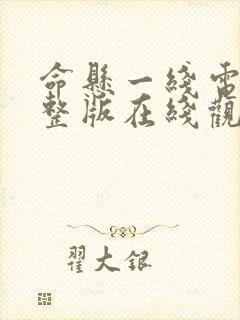 命懸一綫電
整版在綫觀
翟大銀